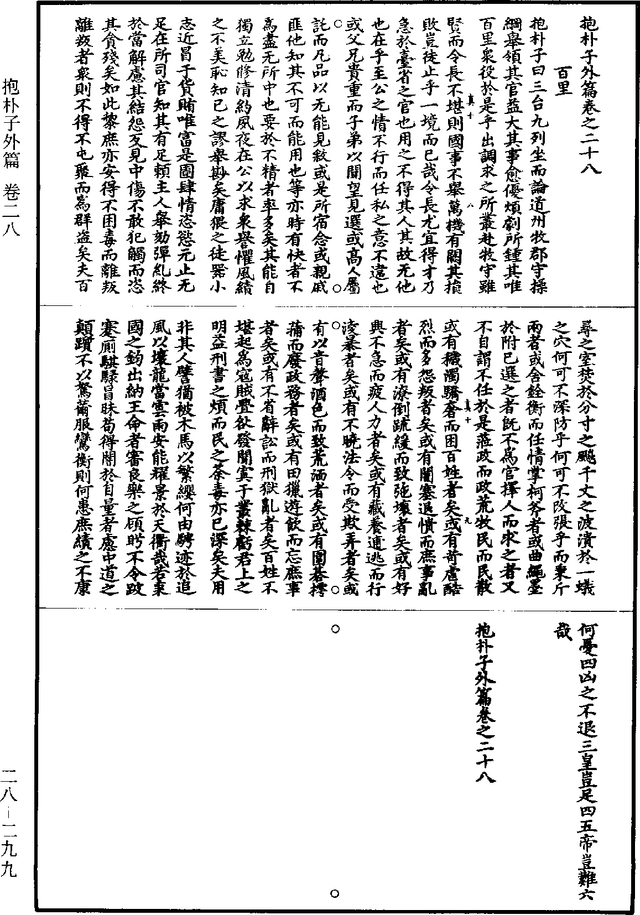 抱朴子外篇卷之二十八
百里
抱朴子曰三台九列坐而論道州牧郡守操
綱舉領其官益大其事愈優煩劇所鍾其唯
百里衆役於是乎出調求之所叢赴牧守雖
賢而令長不堪則國事不舉萬機有闕其損
敗豈徒止乎一境而已哉令長尤宜得才乃
急於臺省之官也用之不得其人其故无他
也在乎至公之情不行而任私之意不違也
或父兄貴重而子弟以聞望見選或高人屬
託而凡品以无能見敘或是所宿念或親戚
匪他知其不可而能用也等亦時有快者不
爲盡无所中也要於不精者率多矣其能自
獨立勉修清約夙夜在公以求衆譽懼風績
之不美恥知己之謬舉尠矣庸猥之徒器小
志近冒于貨賄唯富是圖肆情恣慾无止无
足在所司官知其有足賴主人舉劾彈糺終
於當解慮其結怨反見中傷不敢犯觸而恣
其貪殘矣如此黎庶亦安得不困毒而離叛
離叛者衆則不得不屯聚而爲群盜矣夫百
真十
八
尋之室焚於分寸之飈千丈之波潰於一蟻
之穴何可不深防乎何可不改張乎而秉斤
兩者或舍銓衡而任情掌柯斧者或曲繩墨
於附己選之者既不爲官擇人而求之者又
不自謂不任於是蒞政而政荒牧民而民散
或有穢濁驕奢而困百姓者矣或有苛虐酷
烈而多怨叛者矣或有闇塞退憒而庶事亂
者矣或有潦倒疏緩而致弛壞者矣或有好
興不急而疲人力者矣或有藏養逋逃而行
淩暴者矣或有不曉法令而受欺弄者矣或
有以音聲酒色而致荒湎者矣或有圍棊摴
蒱而廢政務者矣或有田獵遊飲而忘庶事
者矣或有不省辭訟而刑獄亂者矣百姓不
堪起爲寇賊釁欬發聞寘于叢棘虧君上之
明益刑書之煩而民之荼毒亦已深矣夫用
非其人譬猶被木馬以繁纓何由騁迹於追
風以壤龍當雲雨安能耀景於天衢哉若秉
國之鈞出納王命者審良樂之顧眄不令跛
蹇厠騏騄冒昧苟得闇於自量者慮中道之
顛躓不以駑薾服鸞衡則何患庶績之不康
真十
九
何憂四凶之不退三皇豈足四五帝豈難六
哉
抱朴子外篇卷之二十八
抱朴子外篇 卷二八
二八－二九九